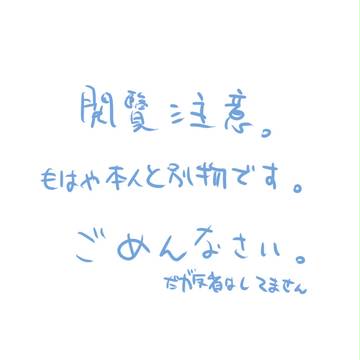 閲覧注意。
もはや本人と別物です。
ごめんなさい。
だが反省はしてません